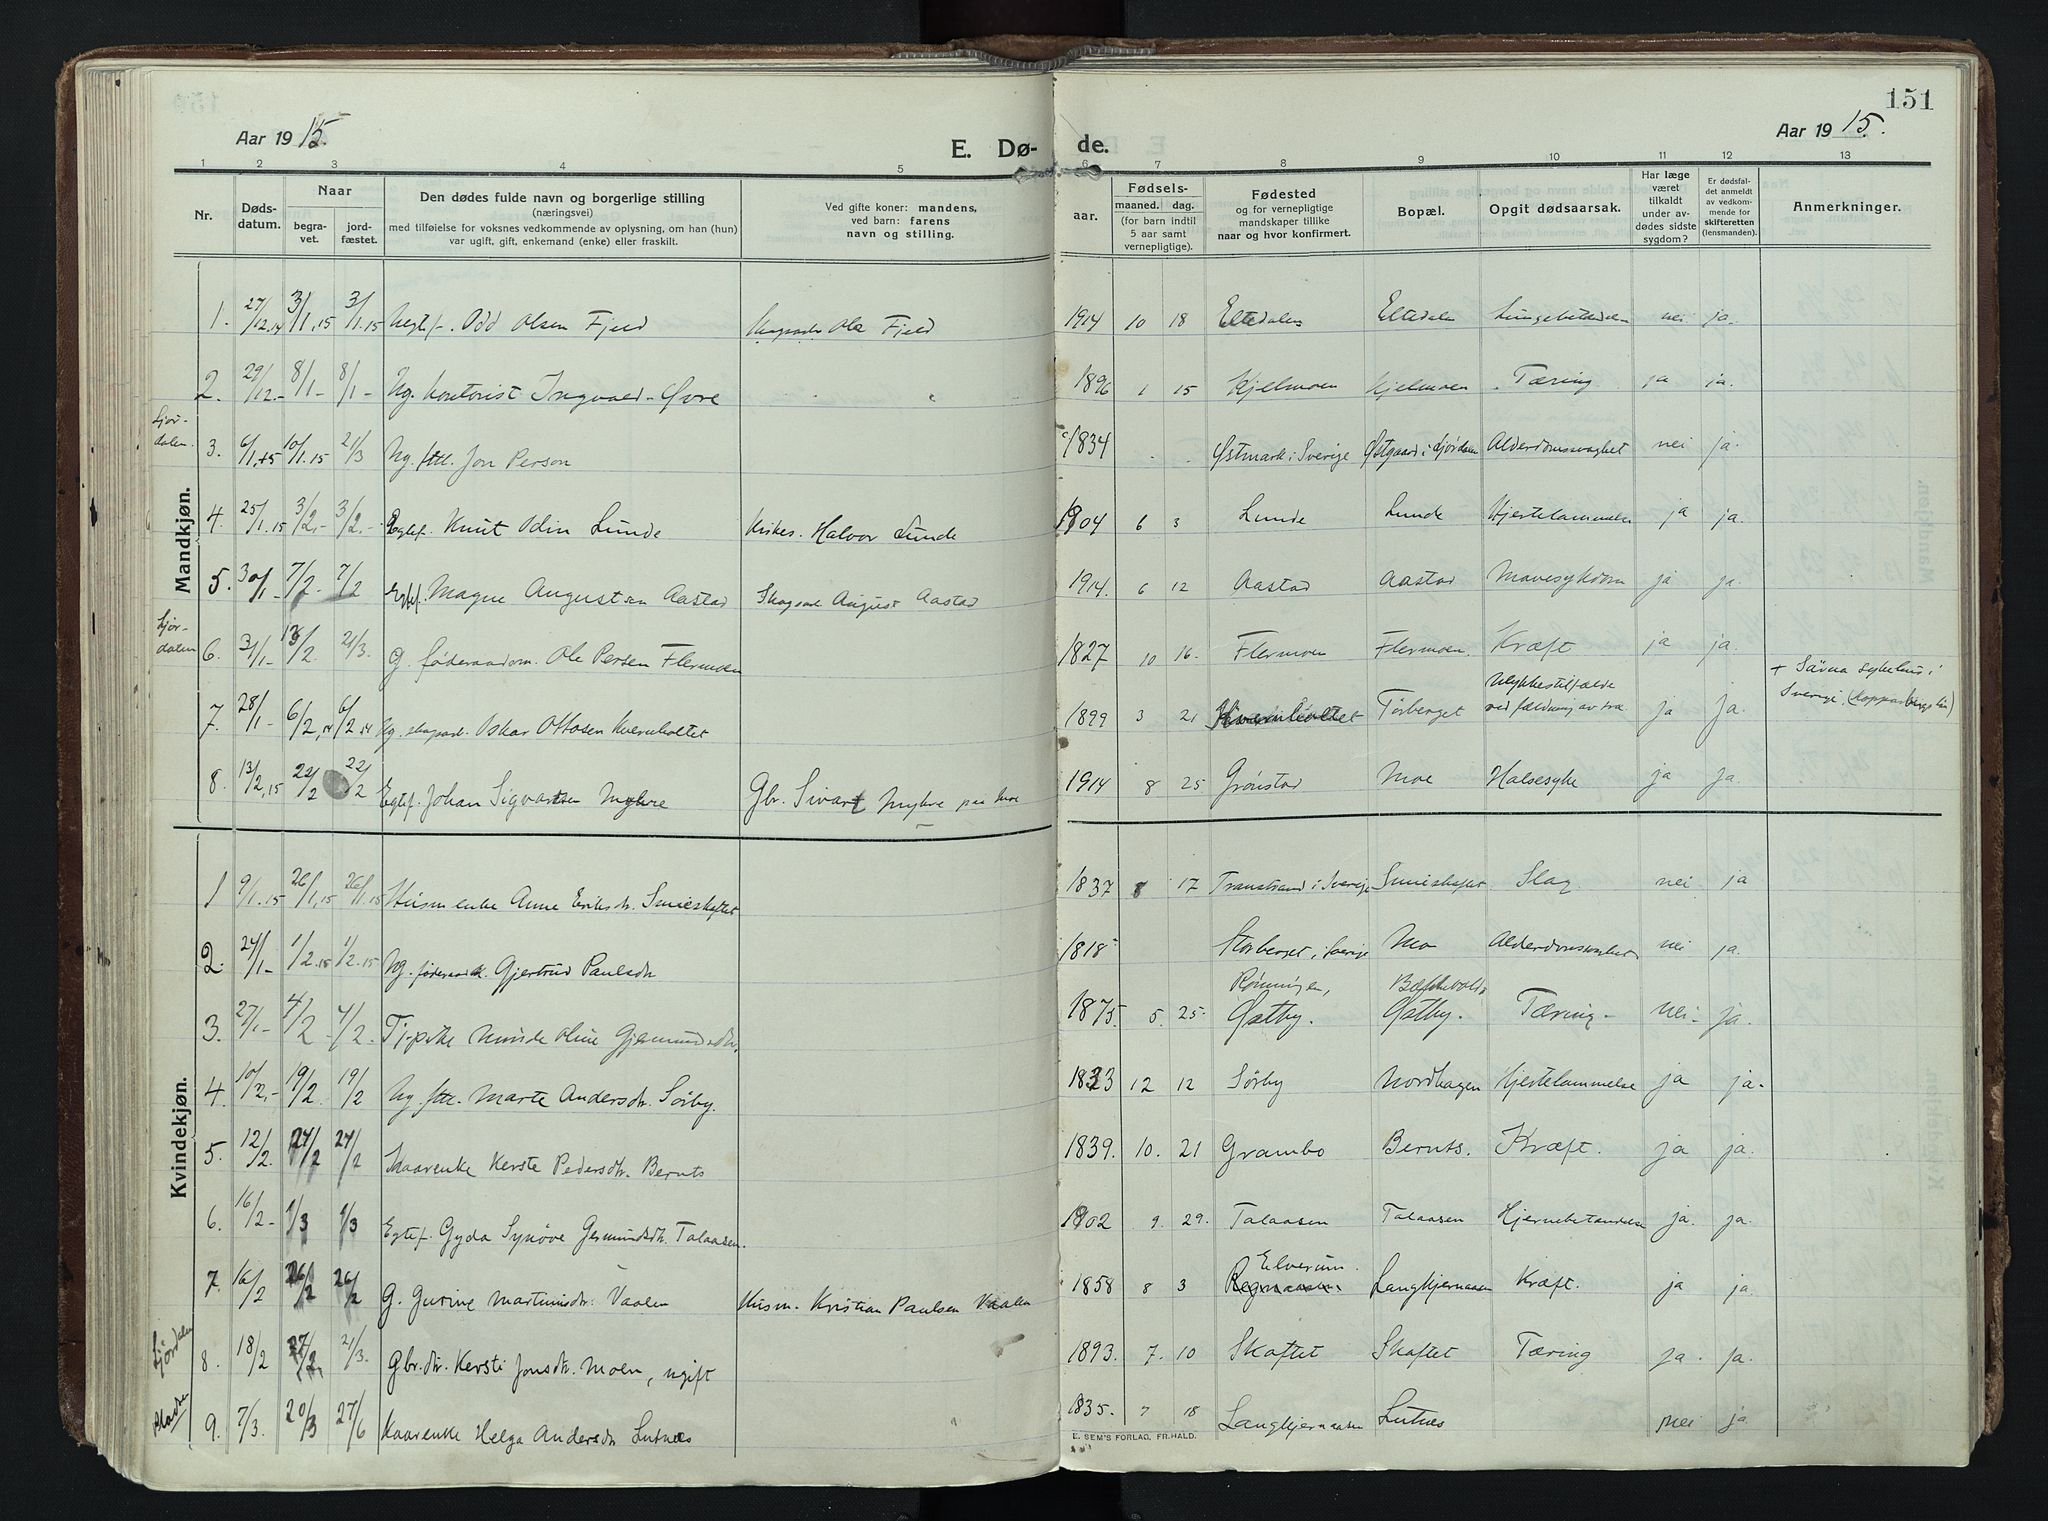 151
Aar 1915.
E. Døde.
Aar 1915.
1 2 3 4 5 6 7 8 9 10 11 12 13
Nr.
Døds-
datum.
Naar
begra-
vet.
jord-
fæstet.
Den dødes fulde navn og borgerlige stilling
(næringsvei)
med tilføielse for voksnes vedkommende av oplysning, om han (hun)
var ugift, gift, enkemand (enke) eller fraskilt.
Ved gifte koner: mandens,
ved barn: farens
navn og stilling.
aar.
Fødsels-
maaned. dag.
(for barn indtil
5 aar samt
vernepligtige).
Fødested
og for vernepligtige
mandskaper tillike
naar og hvor konfirmert.
Bopæl.
Opgit dødsaarsak.
Har læge
været
tilkaldt
under av-
dødes sidste
sygdom?
Er dødsfal-
det anmeldt
av vedkom-
mende for
skifteretten
(lensmanden).
Anmerkninger.
Mandkjøn.
1. 27/12.14 3/1.15 3/1.15 Uegtef. Odd Olsen Fjeld Ole Fjeld 1914 10 18 Eltedalen Eltedalen nei ja.
2. 29/12.- 8/1- 8/1- Ug. kontorist Ingvald Øvre 1896 1 15 Kjelmoen Kjelmoen Tæring ja ja.
Ljør-
dalen.
3. 6/1.15 10/1.15 21/3 Ug. Jon Person 1834 Østmark i Sverige Østgaard i Ljørdalen Alderdomssvaghet nei ja.
4. 25/1.15 3/2.- 3/2.- Egtef. Knut Odin Lunde Kirkes. Halvor Lunde 1904 6 3 Lunde Lunde Hjertelammelse ja ja.
5. 30/1- 7/2- 7/2 Egtef. Magne Augustsen Aastad Skogsarb. August Aastad 1914. 6 12 Aastad Aastad Mavesykdom ja ja.
Ljør-
dalen
6. 31/1- 13/2. 21/3. G. føderaadsm. Ole Persen Flermoen 1827 10 16. Flermoen Flermoen. Kræft ja ja.
7. 28/1- 6/2 6/2 Ug. skogsarb. Oskar Ottosen Kvernholtet 1899 3 21 Kvernholtet Tørberget Ulykkestilfælde
ved fældning av træ. ja ja. + Särna sykehus i
Sverige. (Kopparbergs län)
8. 13/2.15 22/2 22/2 Egtef. Johan Sigvartsen Myhre Gbr. Sivart Myhre paa Moe 1914 8 25 Grønstad Moe Halsesyke ja ja.
Kvindekjøn.
1 9/1.15 26/1.15 26/1.15 Husm enke Anne Eriksdtr. Smieskaftet 1837 8 17 Transtrand i Sverige Smieskaftet Slag nei ja
2. 24/1- 1/2.15 1/2.15 Ug. Gjertrud Paulsdtr 1818 Storberget i Sverige Mo Alderdomssvaghet nei ja.
3. 27/1- 4/2 4/2. Tj.pike Oline Gjermundsdtr. 1875. 5. 25. Rønningen,
Østby. Østby. Tæring- nei- ja.
4. 10/2.- 19/2. 19/2 Ug. Marte Andersdtr. Sørby. 1823 12 12 Sørby Nordhagen Hjertelammelse ja ja.
5. 12/2. 24/2 24/2 Kaarenke Kerste Pedersdtr. Bernts 1839. 10. 21 Grambo Bernts. Kræft. ja ja.
6. 16/2- 1/3 1/3 Egtef. Gyda Synøve Talaasen. 1902 9. 29. Talaasen Talaasen Hjernebetændelse ja. ja.
7. 16/2 26/2 26/2 G. Gurine Martinusdtr. Vaalen Husm. Kristian Paulsen Vaalen 1858 8 3 Elverum. Langkjernaasen Kræft. ja ja.
Ljørdalen
8. 18/2 27/2 21/3. Gbr. dtr. Kersti Jonsdtr. Moen, ugift 1893. 7. 10 Skaftet Skaftet Tæring ja. ja.
9. 7/3. 20/3 27/6 Kaarenke Helga Andersdtr Lutnes 1835. 7 18 Langkjernaasen Lutnes nei ja
E. SEM'S FORLAG, FR.HALD.